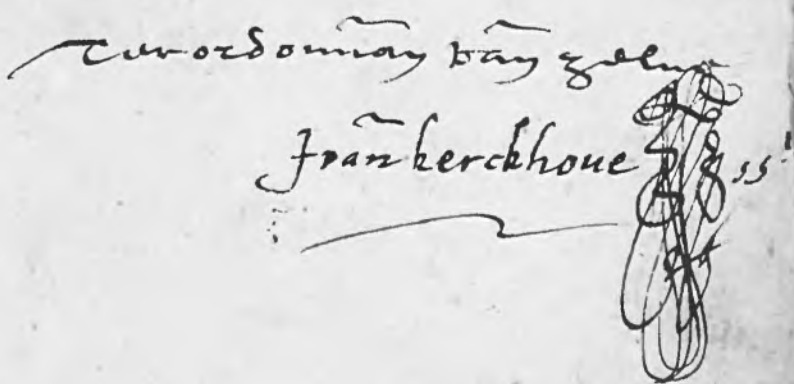 Ter ordonnan̄ van̄ zelue
Jvan̄ kerckhoue ss